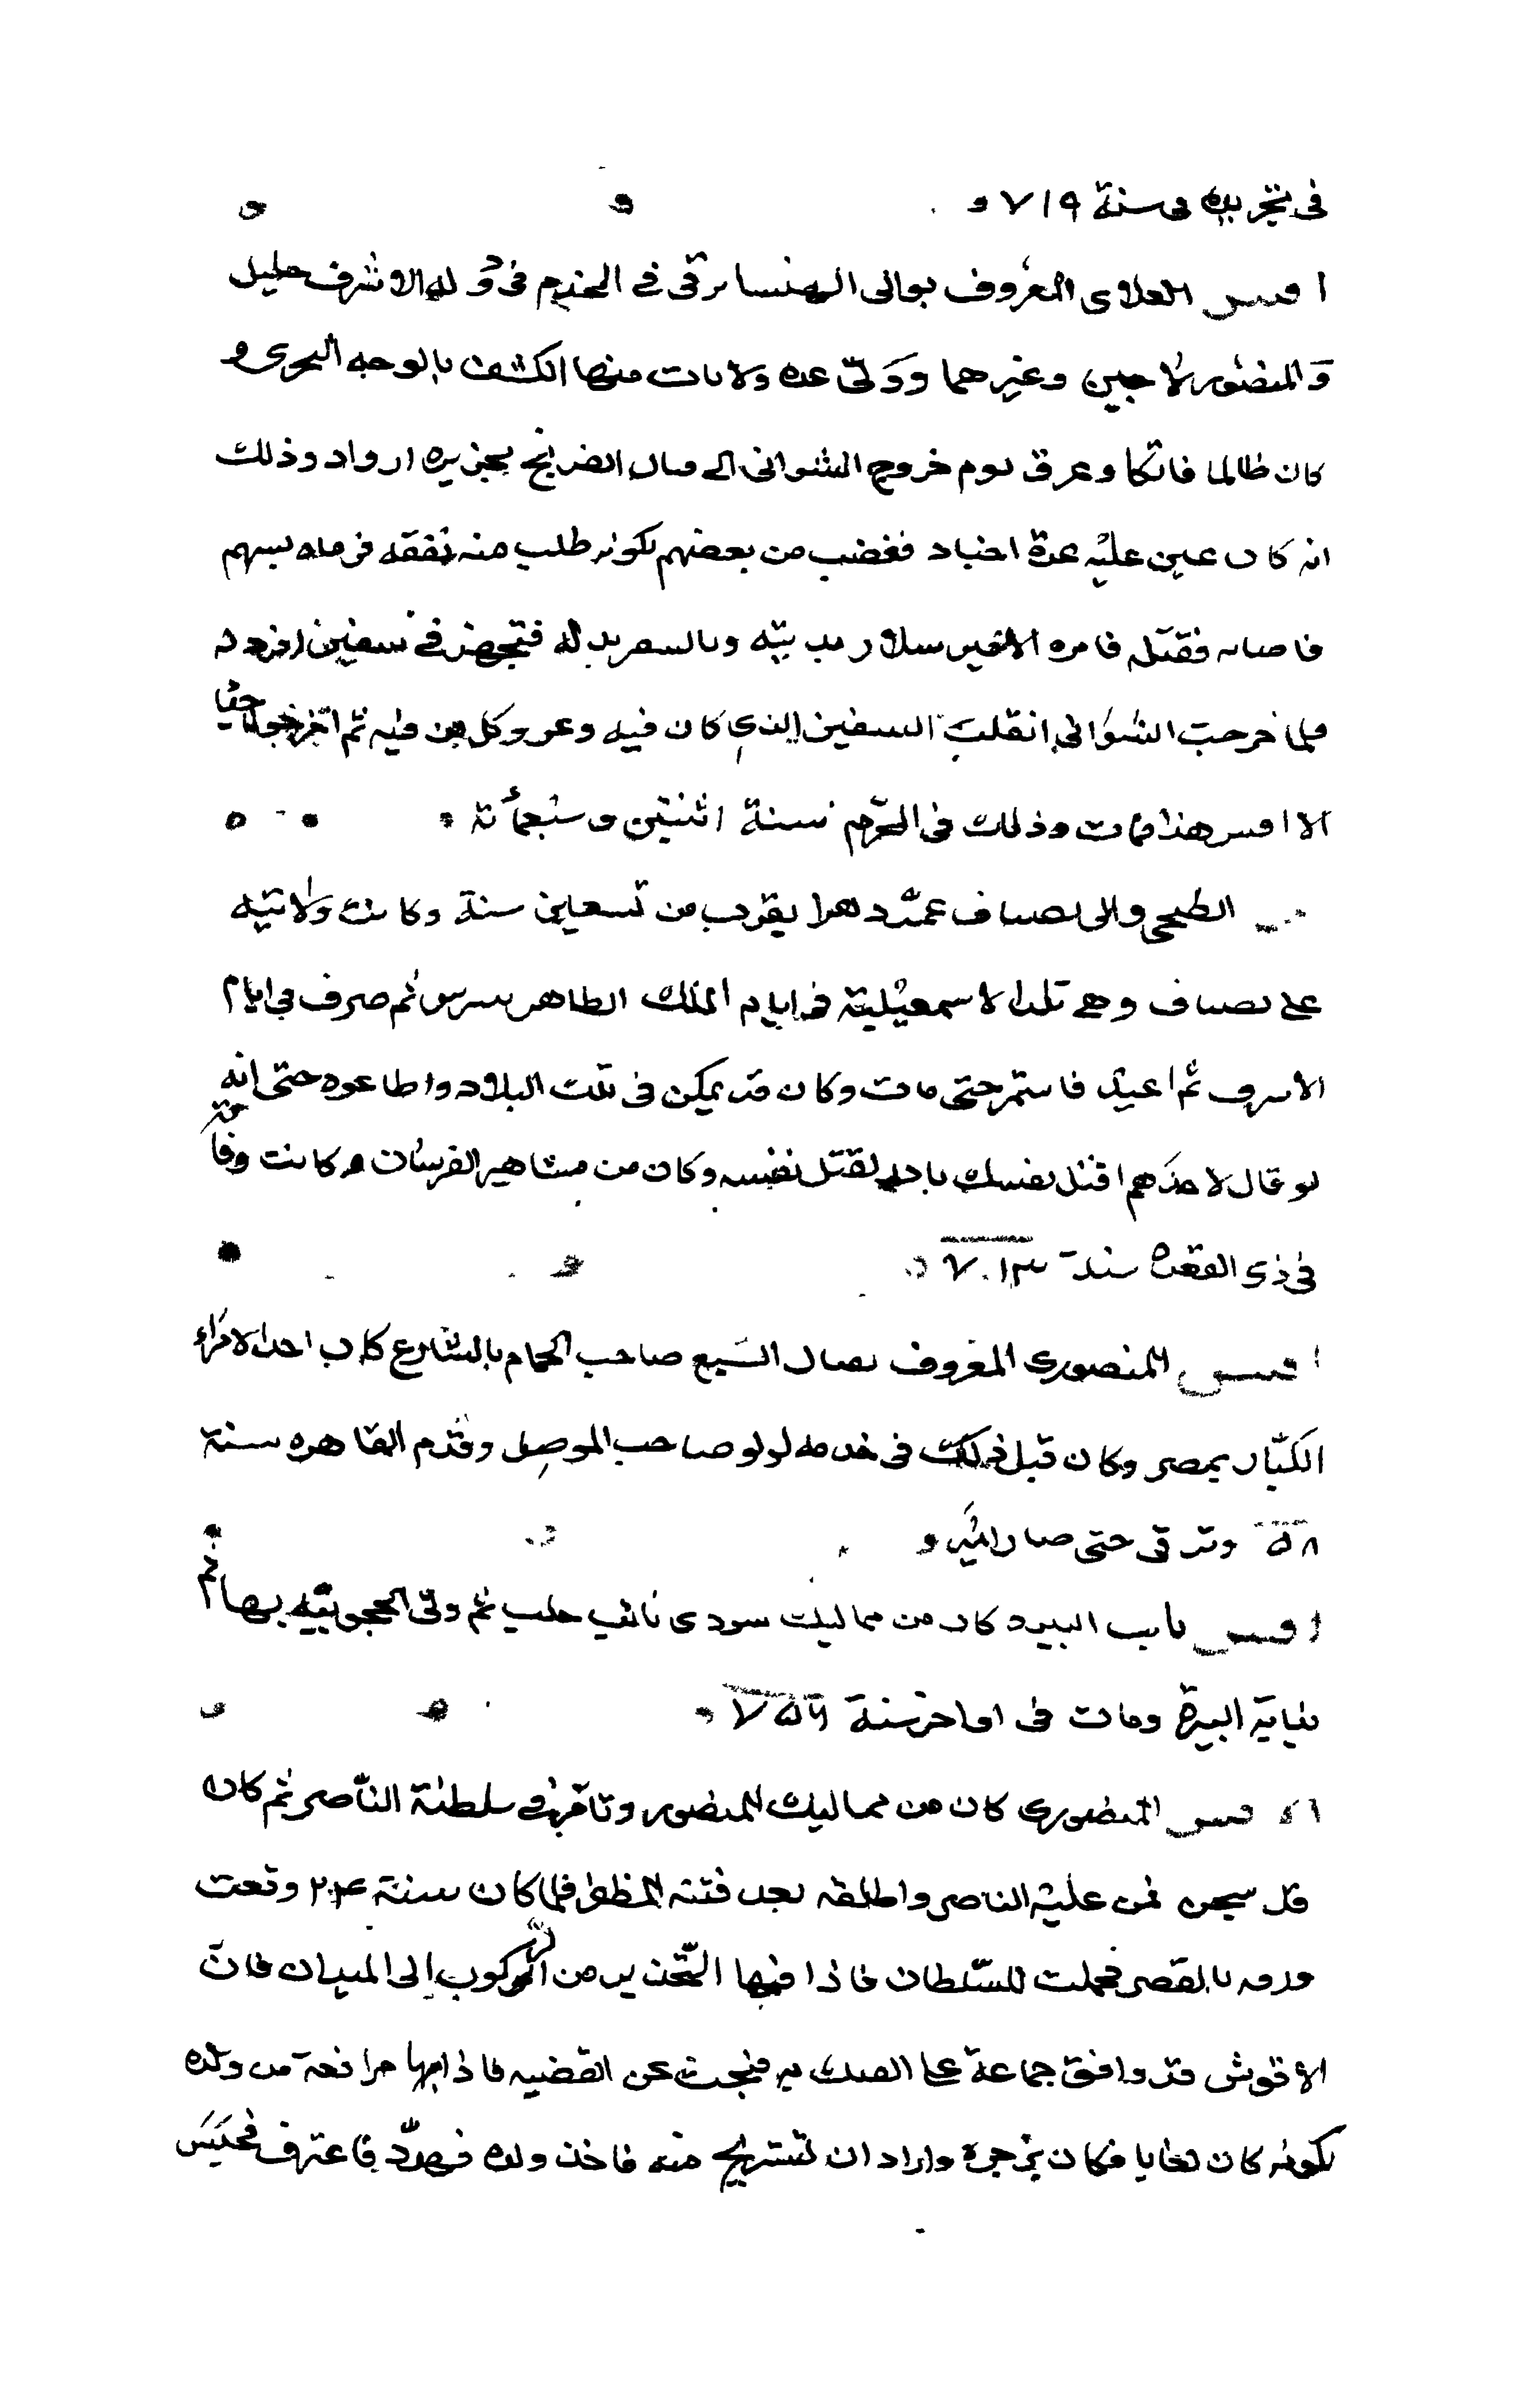 في تجريده في سنة ٧١٩ و
اقوس العلاى المعروف بوالى البهنسا ترقى في الخدم في دولة الاشرف خليل
وَالمنصور لاجين وغيرهما وَوَلّى عده ولايات منها الكشف بالوجه البحرى و
كان ظالما فاتكا وغرق يوم خروج الشوانى الى قتال الفرنج بجزيره ارواد وذلك
انه كان عين عليْه عدة اجناد فغضب من بعضهم لكونه طلب منه نفقه فرماه بسهم
فاصابه فقتله فامره الامير سلار بديته وبالسفر بدله فتجهز في سفين
فلما خرجت الشوَانى انقلبت السفين الذي كان فيه وغرق وكل من فيه ثم اخرجوا احيا
الا اقوس هذا فمات وذلك في المحرّم سنة اثنتين وسبعمأئة
الطبحى والى مصياف عمّر دهرا يقرب من تسعين سنة وكانت ولايتيه
على مصياف وهى تلد الاسمعيلية في ايام الملك الظاهر بيبرس ثم صرف في ايام
الاشرف ثم اعيد فاستمر حتى مات وكان قد تمكن في تلك البلاد واطاعوه حتى انه
لو قال لاحدَهم اقتل نفسك بادر لقتل نفسه وكان من مشاهير الفرسان وكانت وفاته
في ذى القعده سنة ٧٠٣
اقوس المنصورى المعروف بقتال السَبع صاحب الحمام بالشارع كان احد الامَراء
الكبّار بمصر وكان قبل ذلك في خدمه لولو صاحب الموصل وقدم القاهره سنة
٥٨ وترقى حتى صار اميَر و
اقوس نايب البيره كان من مماليك سودى نائب حلب ثم ولّى الحجوبيّه بها ثم
نيابة البيرة ومات في اواخر سنة ٧٥٦
اقوس المنصورى كان من مماليك المنصور وتامّر في سلطنة النّاصر ثم كان
قد سجن فمن عليْه الناصر واطلقه بعد فتنه المظفر فلما كان سنة ٢٤ وقعت
ورقه بالقصر فحملت للسّلطان فاذا فيها التّحذير من الركوب إلى الميدان فان
الاقوش قد وافق جماعة على الفتك به فبحث عن القضيه فاذا انها مرافعة من ولده
لكونه كان لعابا فكان يزجره واراد ان يستريح منه فاخذ ولده فهدّد فاعترف فحبَسَ